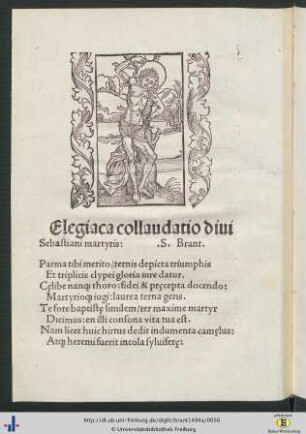 Elegiaca collaudatio divi
Sebastiani martyris: .S. Brant.
Parma tibi merito/ternis depicta triumphis
Et triplicis clypei gloria iure datur.
Cęlibe nanqȝ thoro: fidei & pręcepta docendo:
Martyrioqȝ iugi: laurea terna gens.
Te fore baptistę similem/ter maxime martyr
Dicimus: en illi consona vita tua est.
Nam licet huic hirtus dedit indumenta camęlus:
Atqȝ heremi fuerit incola sylviserę:
http://dl.ub.uni-freiburg.de/diglit/brant1494a/0036
© Universitätsbibliothek Freiburg